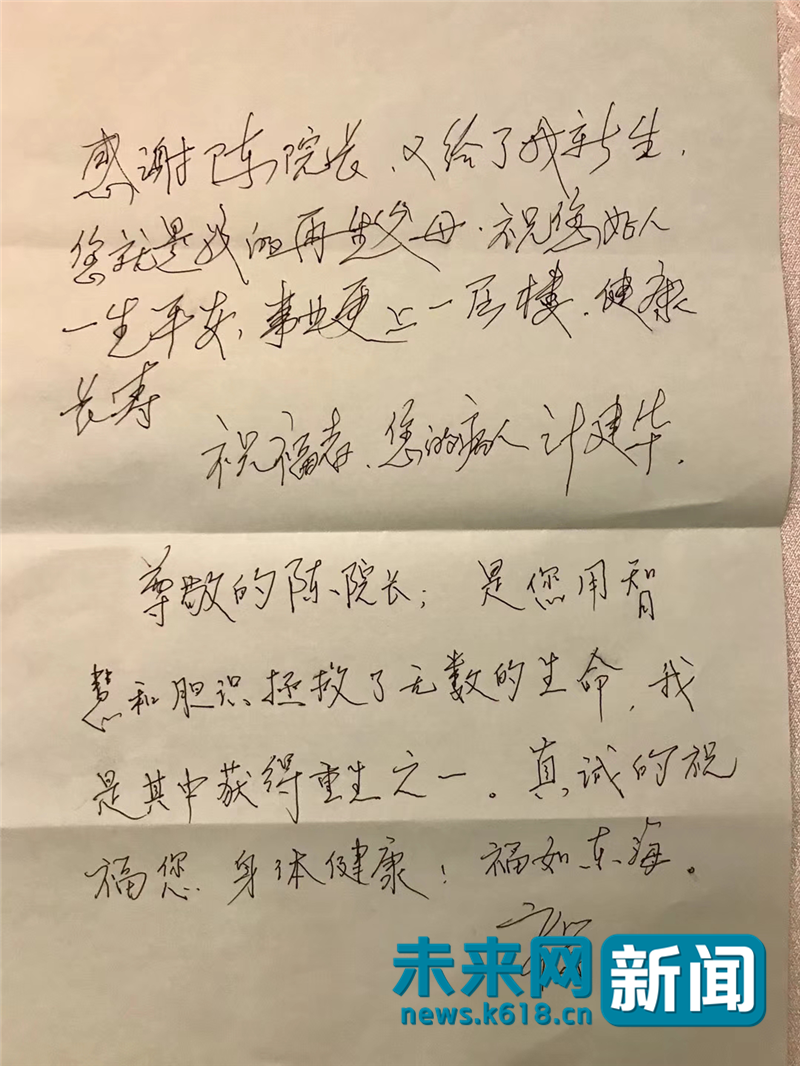 感谢陈院长,又给了我新生,
您就是我的再生父母.祝您好人
一生平安,事业更上一层楼.健康
长寿
祝福者、您的病人计建华.
尊敬的陈院长; 是您用智
慧和胆识拯救了无数的生命,我
是其中获得重生之一。真诚的祝
福您 身体健康!福如东海。
未来网 新闻
news.k618.cn